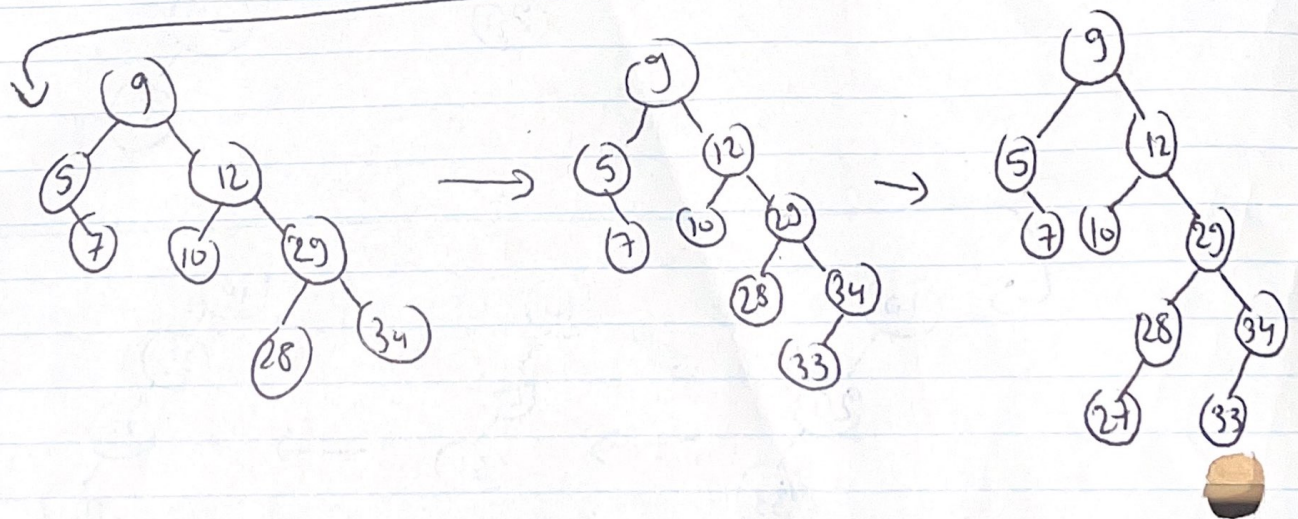 9
5 12
7 10 29
28 34
9
5 12
7 10 29
28 34
33
9
5 12
7 10 29
28 34
27 33